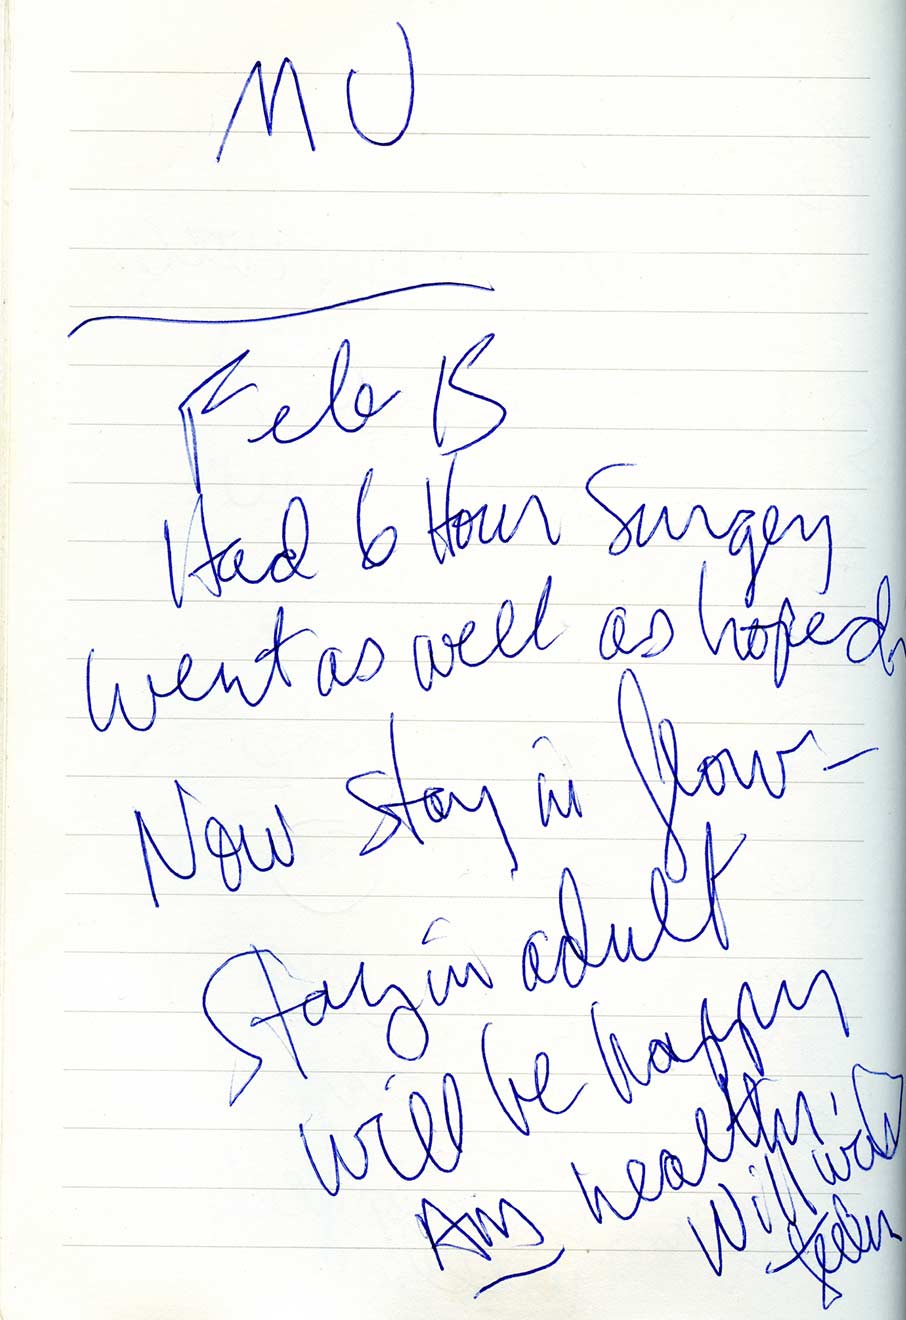 MU
Feb 15
Had 6 Hour Surgery
went as well as hoped
Now stay in flow -
Stay in adult
will be happy
Am healthy
Will